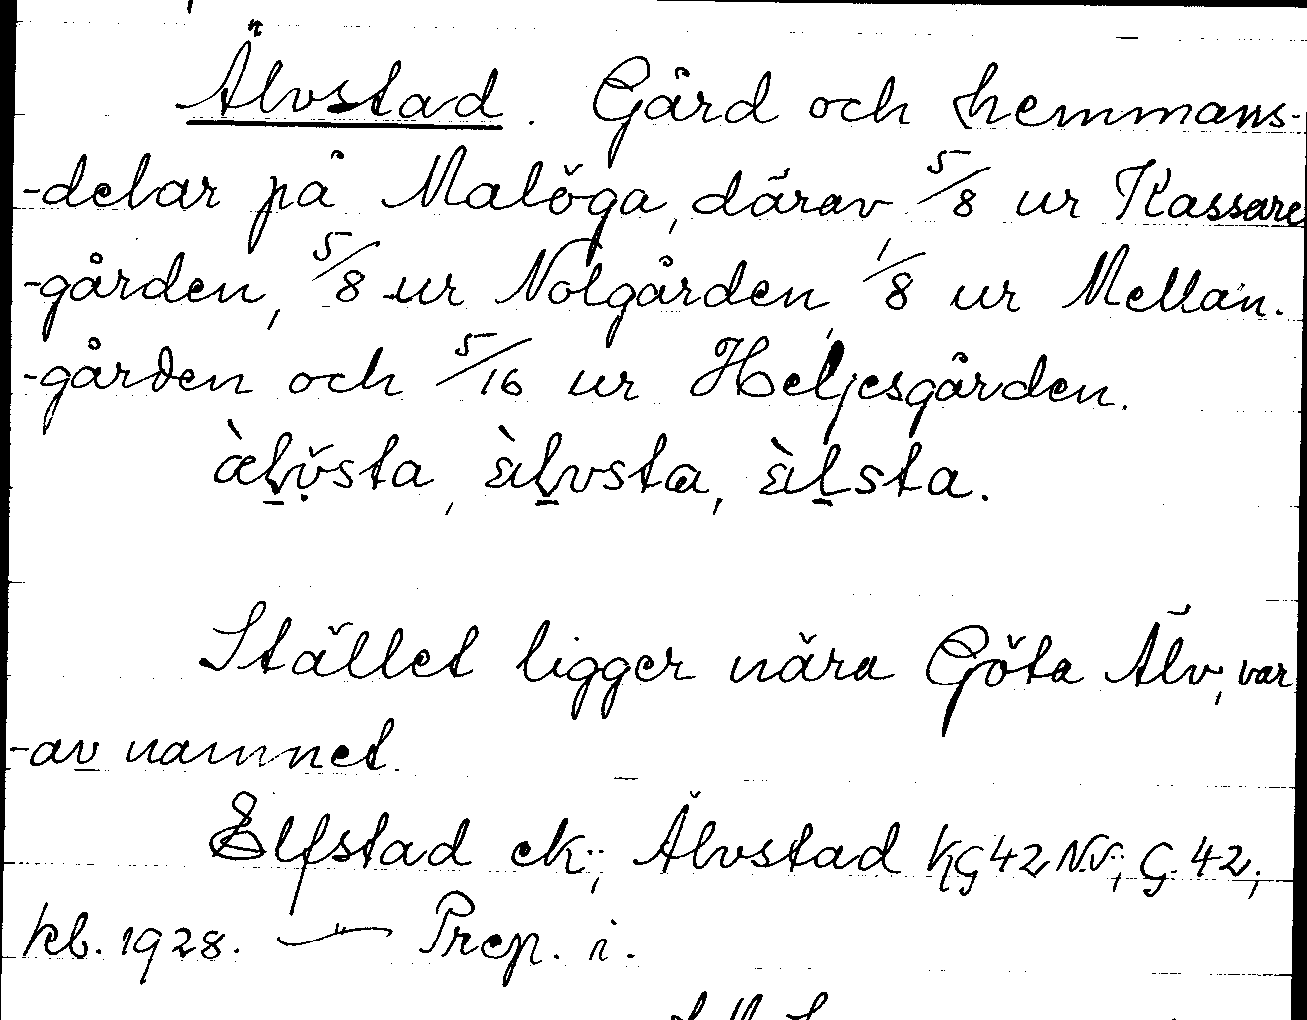 Älvstad. Gård och hemmans-
-delar på Malöga, därav 5/8 ur Kassare
-gården, 5/8 ur Nolgården, 1/8 ur Mellan.
-gården och 5/16 ur Heljesgården.
Stället ligger nära Göta Älv, var
-av namnet.
Elfstad ek.; Älvstad KG 42 NV; G. 42;
kb. 1928. — Prep. i.